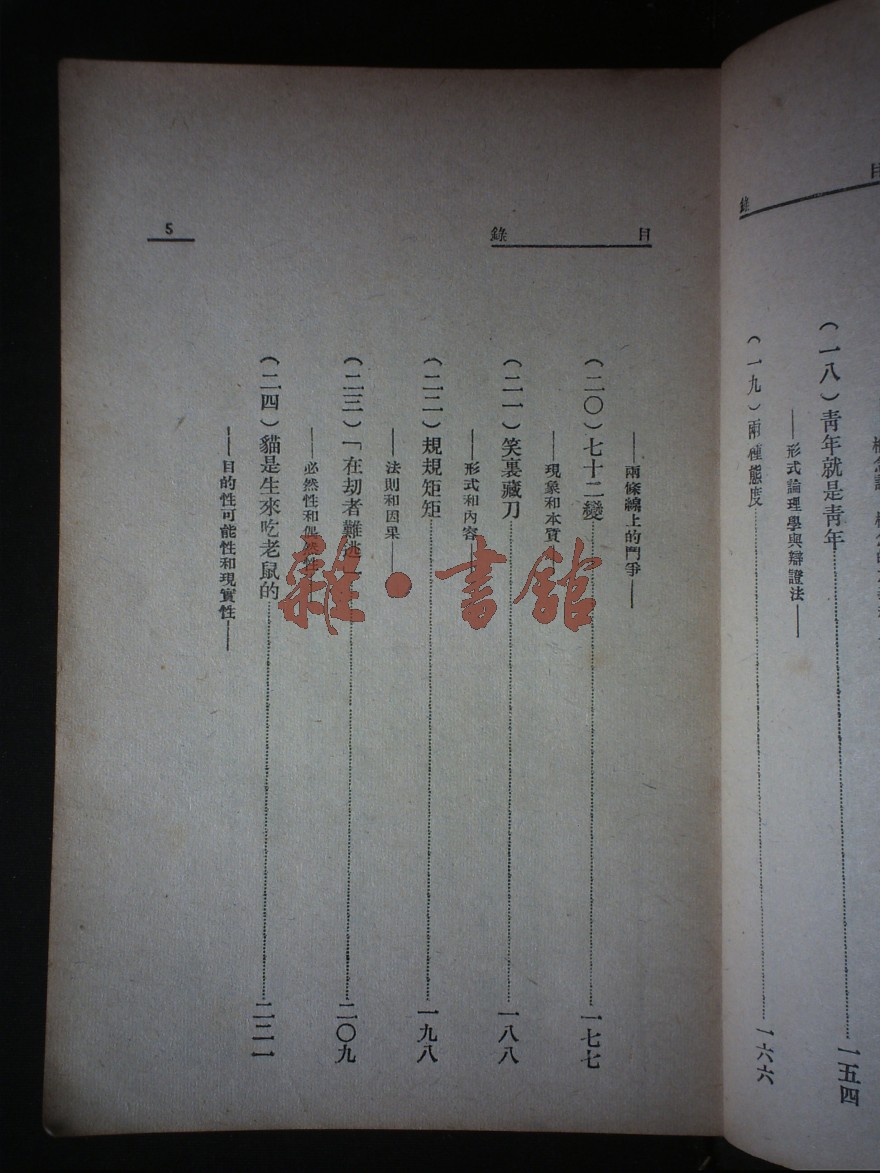 目錄
(一八)青年就是青年……一五四
——形式論理學與辯證法——
(一九)兩種態度……一六六
目錄
5
——兩條線上的鬥爭——
(二〇)七十二變……一七七
——現象和本質——
(二一)笑裏藏刀……一八八
——形式和內容——
(二二)規規矩矩……一九八
——法則和因果——
(二三)「在劫者難逃……二〇九
——必然性和偶然性
(二四)貓是生來吃老鼠的……二二一
——目的性可能性和現實性——
雜·書館